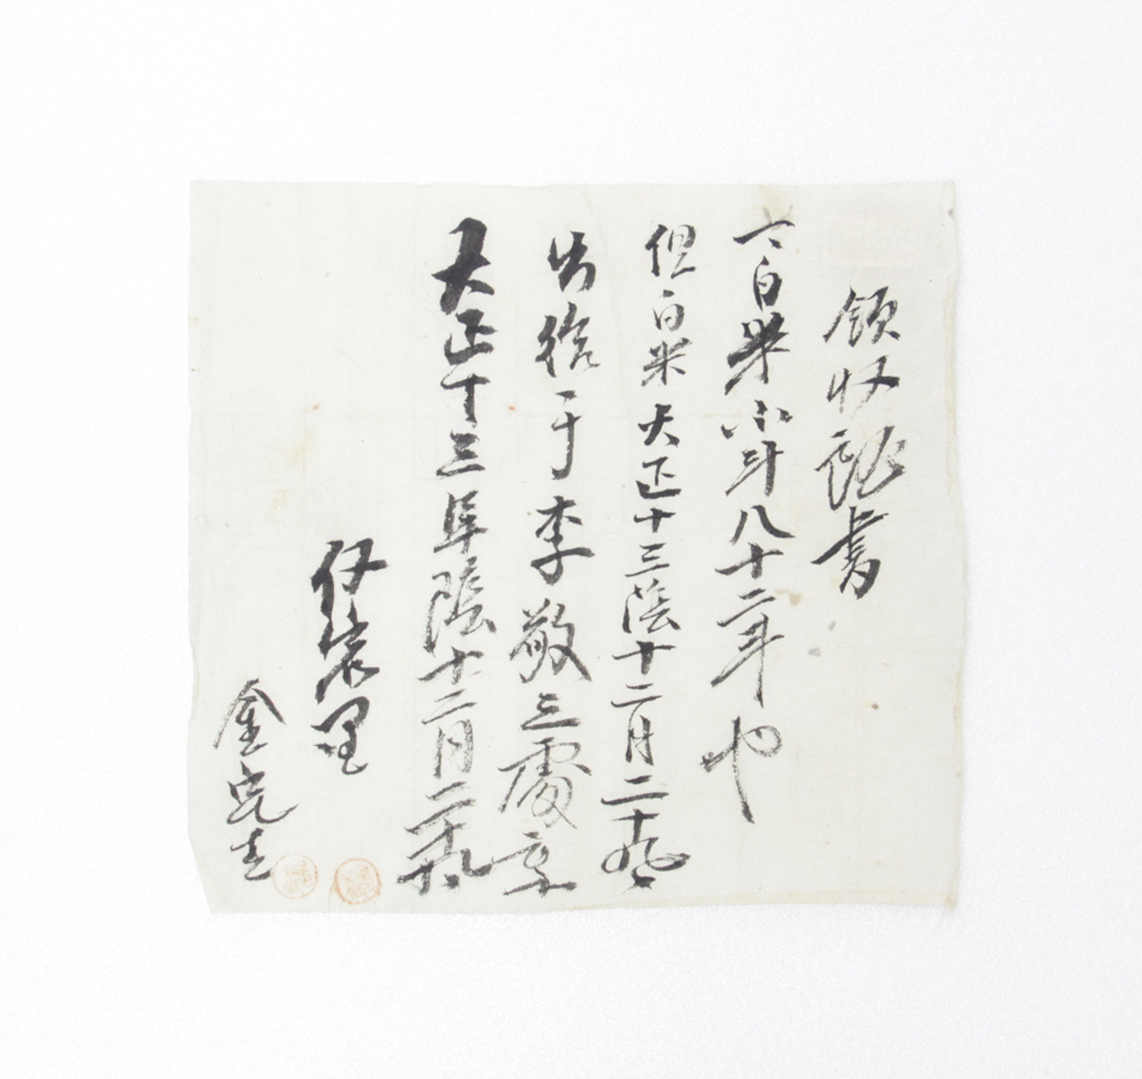 領収証書
白米小斗八十二斗也
但白米大正十三陰十二月二十九日
出給于李敬三處事
大正十三年陰十二月二十九日
里
金完圭